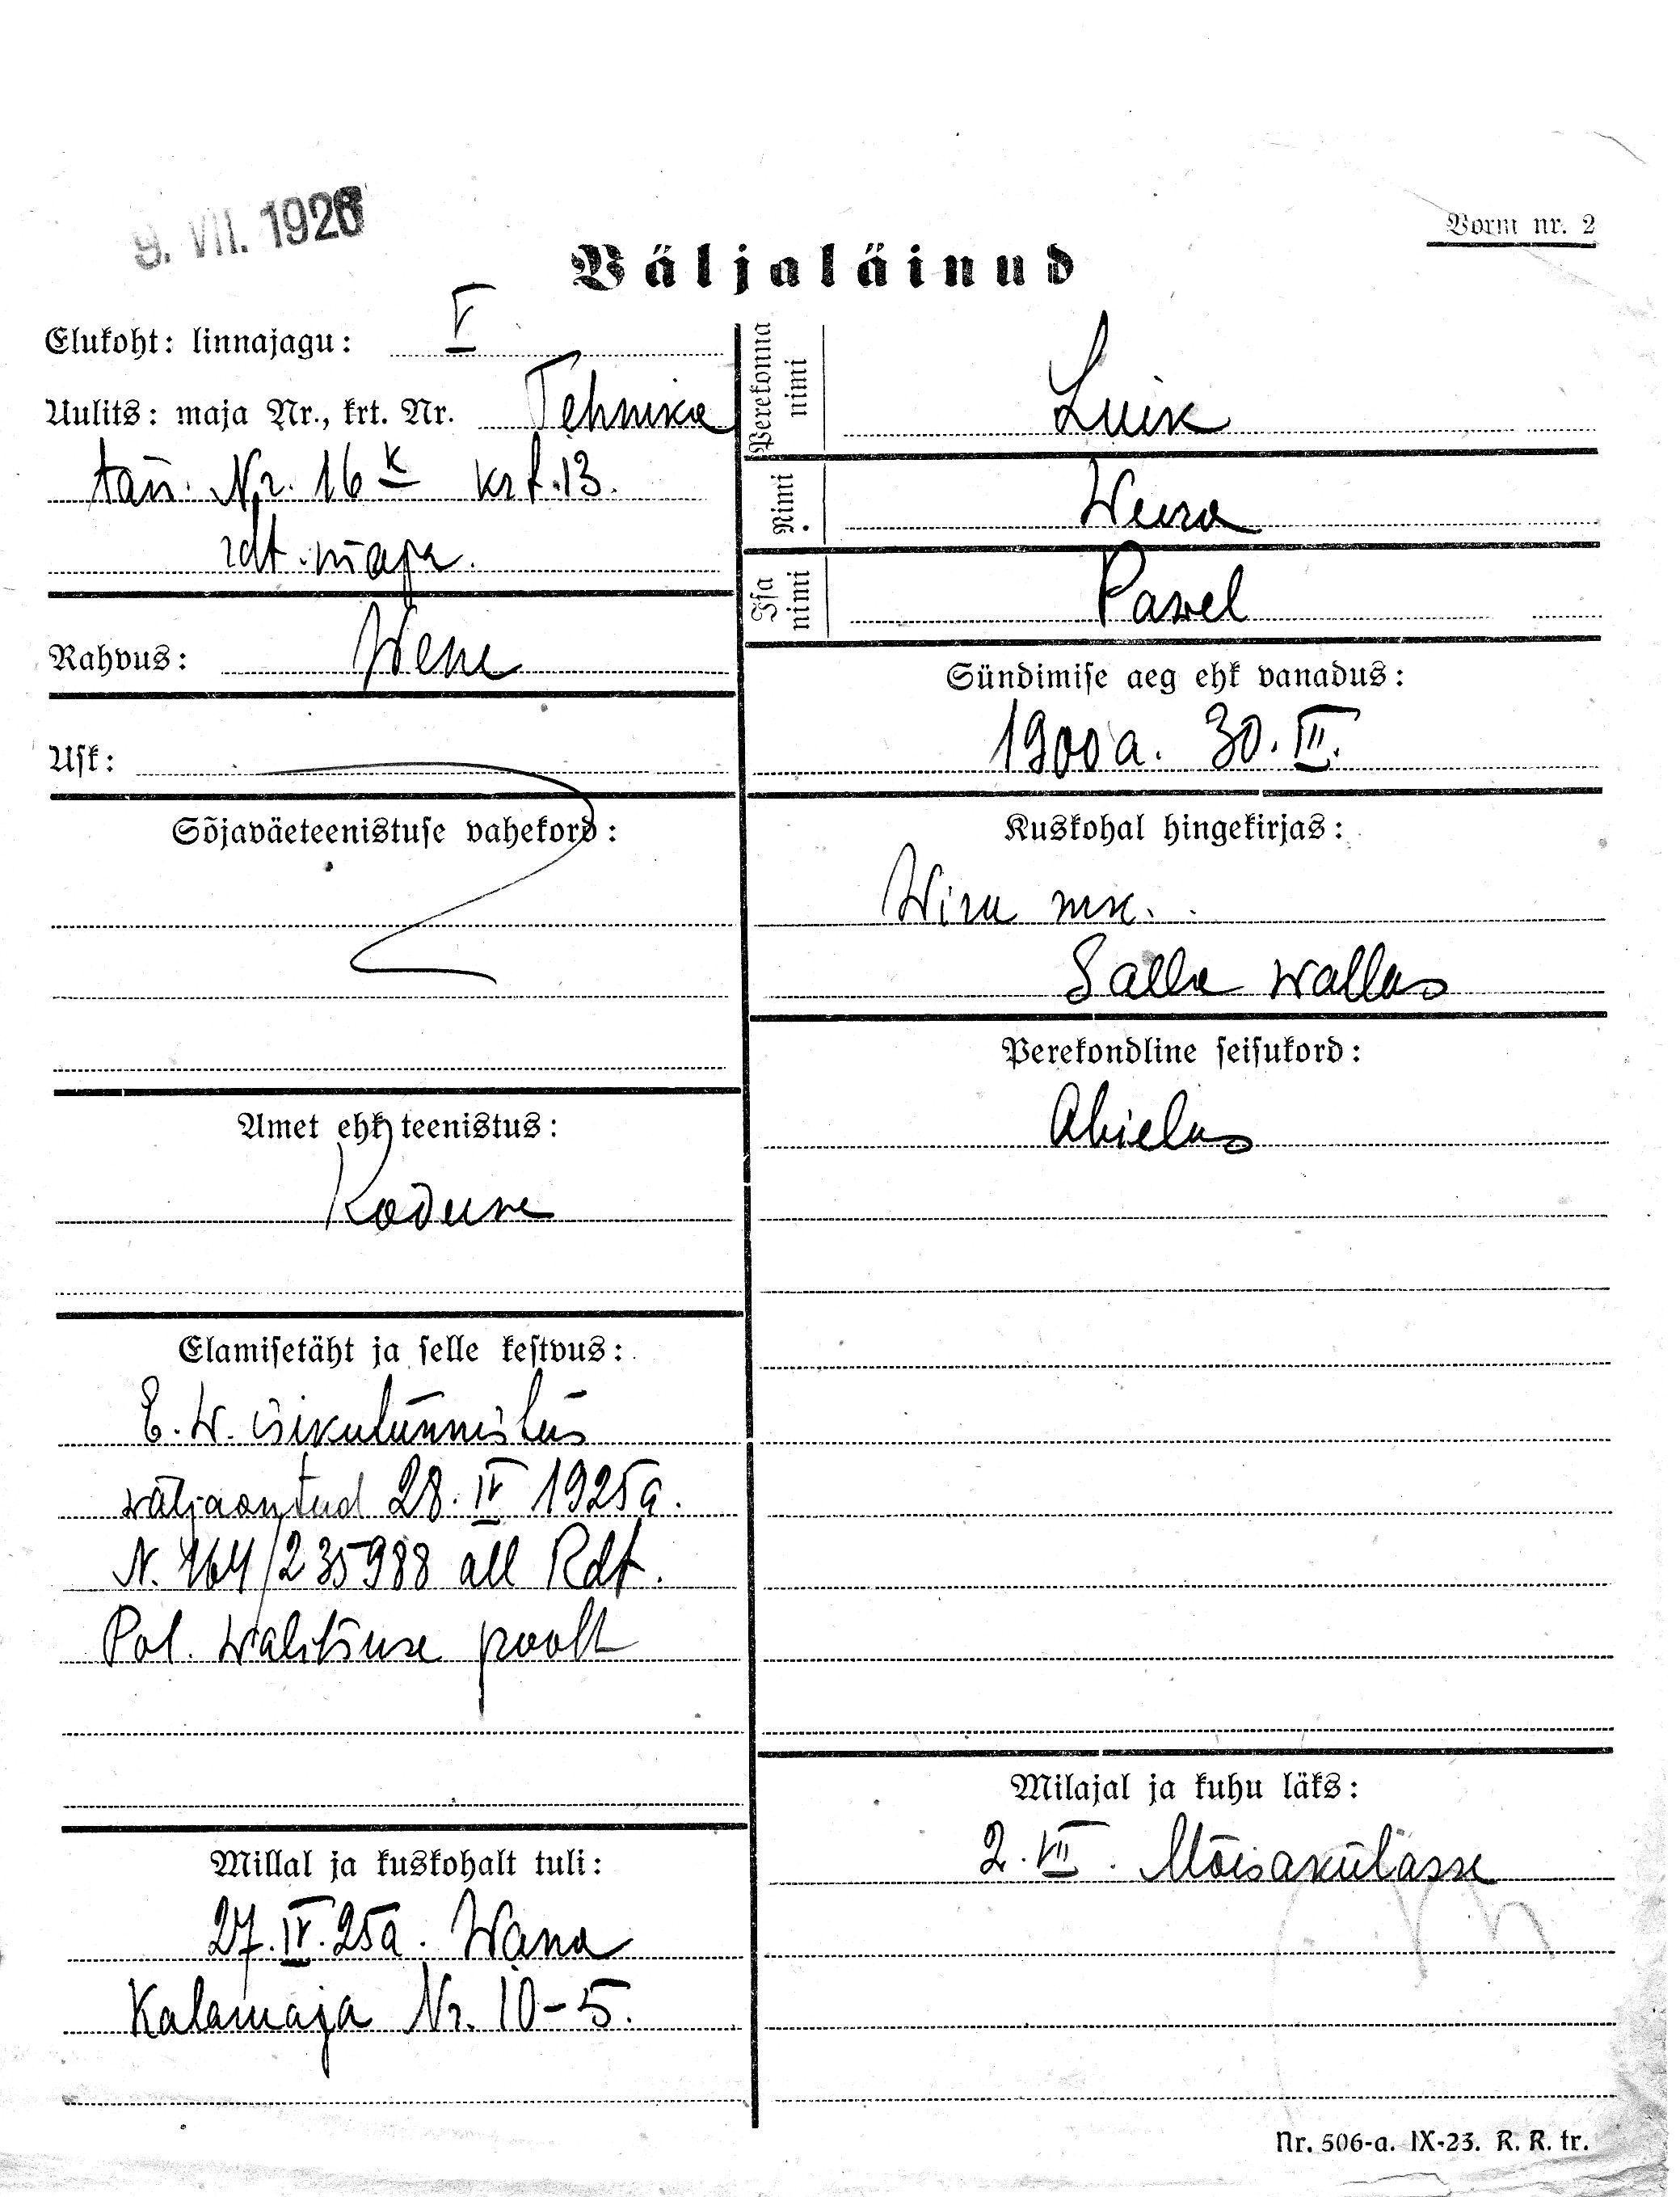 9. VII. 1926
Vorm nr. 2
Väljaläinud
Elukoht: linnajagu: V
Uulits: maja Nr., krt. Nr. Tehnika
tän. Nr. 16 k krt. 13.
rdt. maja.
Rahvus: Wene
Usk:
Sõjaväeteenistuse vahekord:
Amet ehk teenistus:
Kodune
Elamisetäht ja selle kestvus:
E. W. isikutunnistus
wäljaantud 28. IV 1925 a.
N. 164/235988 all Rdt.
Pol. Walitsuse poolt
Millal ja kuskohalt tuli:
27. IV. 25 a. Wana
Kalamaja Nr. 10-5.
Perekonna nimi Luik
Nimi Weera
Isa nimi Pawel
Sündimise aeg ehk vanadus:
1900 a. 30. III.
Kuskohal hingekirjas:
Wiru mk.
Salla wallas
Perekondline seisukord:
Abielus
Milajal ja kuhu läks:
2. VII. Mõisakülasse
Nr. 506-a. IX-23. R. R. tr.